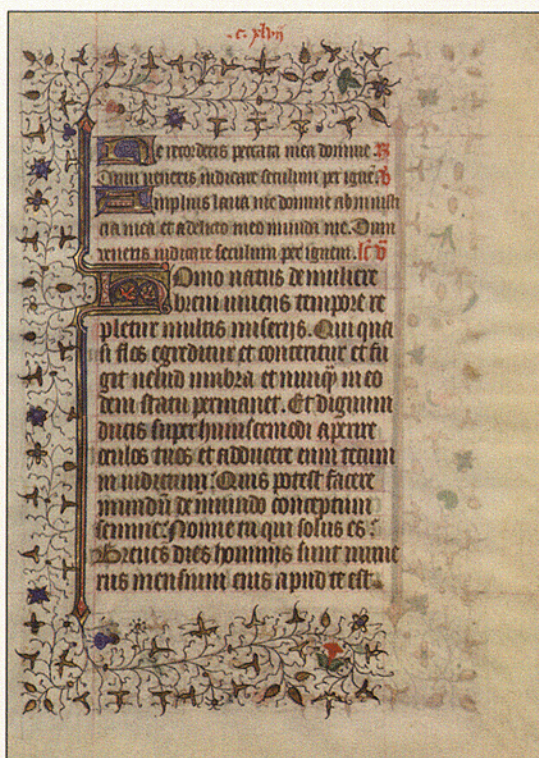 .c. xlvij
Ne recorderis peccata mea domine. R
Dum ueneris iudicare seculum per ignē. v
Amplius laua me domine ab iniusti
cia mea et a delicto meo munda me. Dum
veneris iudicare seculum per ignem. lc̄ v
Homo natus de muliere
breui uiuens tempore re
pletur multis miserijs. Qui qua
si flos egreditur et conteritur et fu
git uelud umbra et nunqȝ in eo
dem statu permanet. Et dignum
ducis super huiuscemodi aperire
oculos tuos et adducere eum tecum
in iudicium. Quis potest facere
mundū de inmundo conceptum
semine. Nonne tu qui solus es.
Breues dies hominis sunt nume
rus mensium eius apud te est.